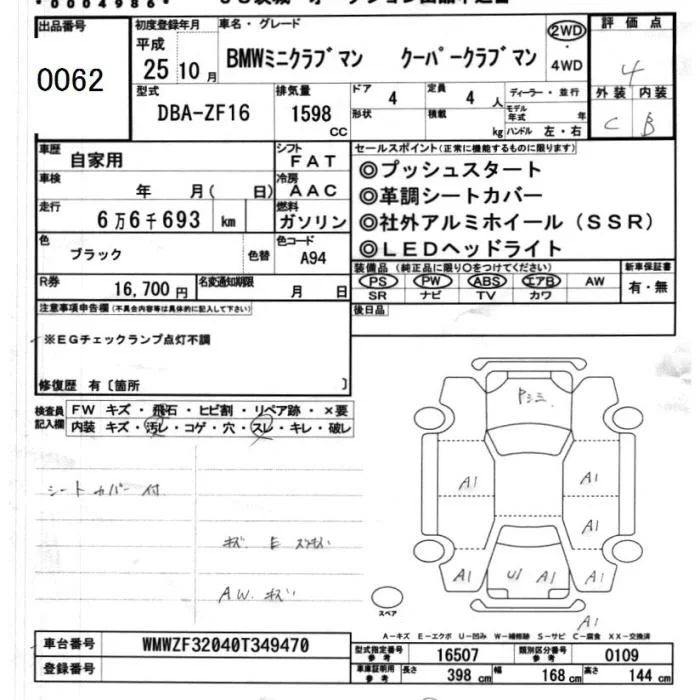 *0004986*
出品番号
0062
初度登録年月
平成
25 10 月
車名・グレード
BMWミニクラブマン クーパークラブマン
2WD
・
4WD
評価点
4
外装 内装
C B
型式
DBA-ZF16
排気量
1598
CC
ドア
4
定員
4 人
形状
積載
kg
ディーラー・並行
モデル
年式 年
ハンドル 左・右
車歴
自家用
シフト
FAT
車検
年 月( 日)
冷房
AAC
走行
6万6千693 km
燃料
ガソリン
色
ブラック
色替
色コード
A94
R券
16,700円
名変通知期限
月 日
セールスポイント(正常に機能するものに限ります)
◎プッシュスタート
◎革調シートカバー
◎社外アルミホイール(SSR)
◎LEDヘッドライト
装備品 (純正品に限り○をつけてください)
PS PW ABS エアB AW
SR ナビ TV カワ
新車保証書
有・無
後日品
注意事項申告欄(不具合内容等は具体的に記入して下さい)
※EGチェックランプ点灯不調
修復歴 有〔箇所 〕
検査員
記入欄
FW キズ・飛石・ヒビ割・リペア跡・×要
内装 キズ・汚レ・コゲ・穴・スレ・キレ・破レ
シートカバー付
キズ E スリキズ
A.W. キズ
Pシミ
A1
A1
A1
A1
A1
U1 A1
A1
A1
スペア
A-キズ E-エクボ U-凹み W-補修跡 S-サビ C-腐食 XX-交換済
車台番号
WMWZF32040T349470
登録番号
型式指定番号
参考
16507
類別区分番号
参考
0109
車庫証明用
参考
長さ
398 cm
幅
168 cm
高さ
144 cm